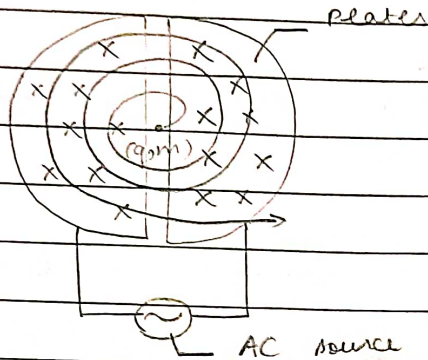 Plates
(q,m)
AC source